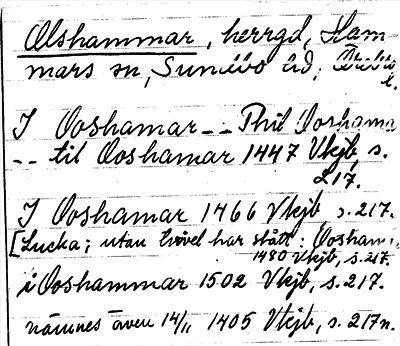 Olshammar, herrgd, Ham-
mars sn, Sundbo hd, Örebro
l.
I Ooshamar -- Phil Ooshama
-- til Ooshamar 1447 Vkjb, s.
217.
I Ooshamar 1466 Vkjb, s. 217.
[Lucka; utan tvivel har stått: Oosham
1480 Vkjb, s. 217.
i Ooshammar 1502 Vkjb, s. 217.
nämnes även 14/11 1405 Vkjb, s. 217 n.